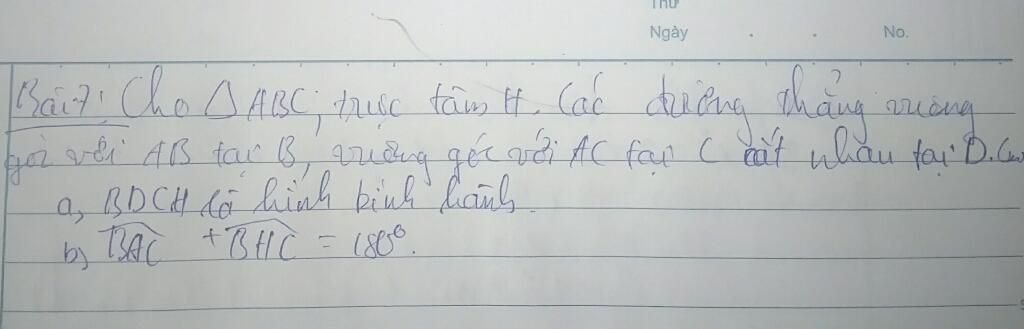 Thứ
Ngày . . No.
Bài 7: Cho Δ ABC, trực tâm H. Các đường thẳng vuông
góc với AB tại B, vuông góc với AC tại C cắt nhau tại D. Cm
a, BDCH là hình bình hành.
b, BAC + BHC = 180°.